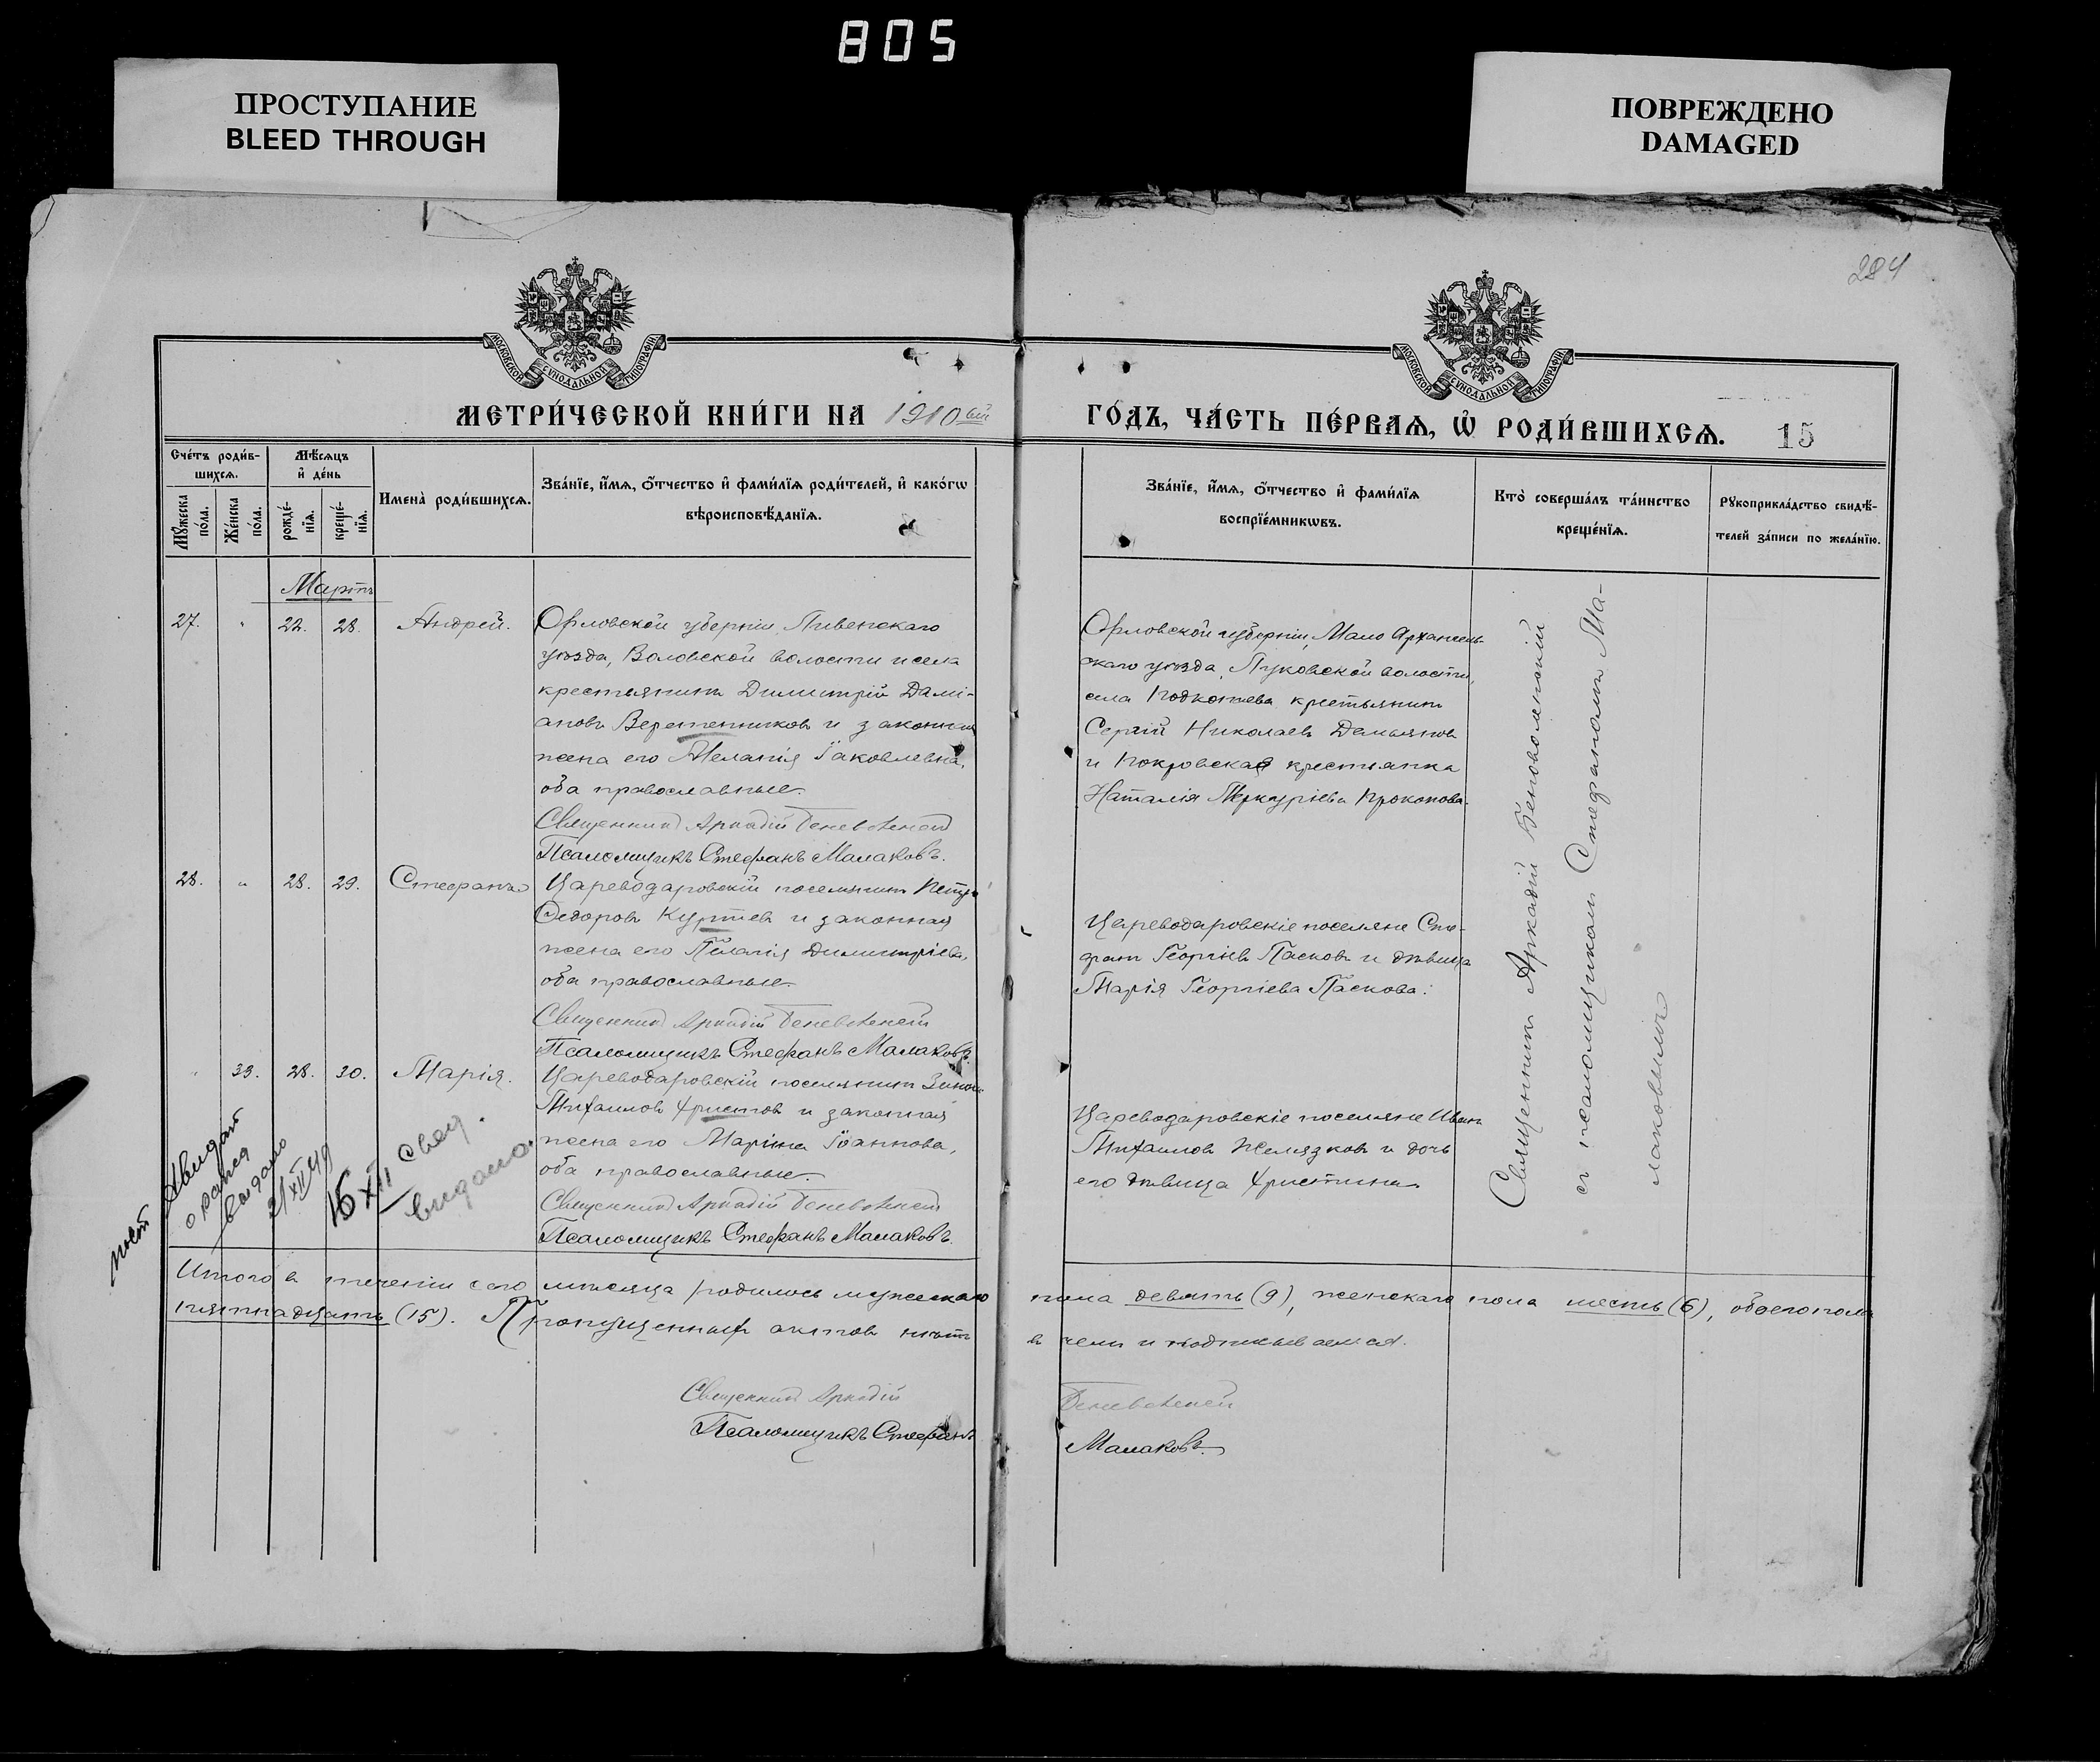 805
ПРОСТУПАНИЕ
BLEED THROUGH
ПОВРЕЖДЕНО
DAMAGED
284
МОСКОВСКОЙ СѴНОДАЛЬНОЙ ТИПОГРАФІИ
МОСКОВСКОЙ СѴНОДАЛЬНОЙ ТИПОГРАФІИ
МЕТРИ́ЧЕСКОЙ КНИ́ГИ НА 1910ый
ГО́ДЪ, ЧА́СТЬ ПЕ́РВАѦ, Ѡ҆ РОДИ́ВШИХСѦ. 15
Сче́тъ роди́в-
шихсѧ.
Мꙋ́жеска по́ла.
Же́нска по́ла.
Мѣ́сѧцъ
и҆ де́нь
рожде́-нїѧ.
креще́-нїѧ.
Имена̀ роди́вшихсѧ.
Зва́нїе, и҆́мѧ, ѻ҆́тчество и҆ фами́лїѧ роди́телей, и҆ како́гѡ
вѣроисповѣ́данїѧ.
Зва́нїе, и҆́мѧ, ѻ҆́тчество и҆ фами́лїѧ
воспрїе́мникѡвъ.
Кто̀ соверша́лъ та́инство
креще́нїѧ.
Рꙋкоприкла́дство свидѣ́-
телей за́писи по жела́нїю.
Мартъ
27. " 22. 28. Андрей.
Орловской губерніи Ливенскаго
уѣзда, Воловской волости и села
крестьянинъ Димитрій Дамі-
ановъ Веретенниковъ и законная
жена его Меланія Іаковлевна,
оба православные.
Священникъ Аркадій
Псаломщикъ Стефанъ Малаковъ.
Орловской губерніи, Мало Архангель-
скаго уѣзда, Луковской волости,
села крестьянинъ
Сергій Николаевъ Демьяновъ
и Покровская крестьянка
Наталія Меркуріева Прокопова.
28. " 28. 29. Стефанъ
Цареводаровскій поселянинъ Петръ
Ѳедоровъ Куртевъ и законная
жена его Пелагія Димитріева,
оба православные.
Священникъ Аркадій
Псаломщикъ Стефанъ Малаковъ.
Цареводаровскіе поселяне Сте-
фанъ Георгіевъ Пасковъ и дѣвица
Марія Георгіева Паскова.
" 33. 28. 30. Марія.
Цареводаровскій поселянинъ
Михаиловъ Христовъ и законная
жена его Марина Іоаннова,
оба православные.
Священникъ Аркадій
Псаломщикъ Стефанъ Малаковъ.
Цареводаровскіе поселяне Иванъ
Михаиловъ Желязковъ и дочь
его дѣвица Христина.
Священникъ Аркадій
съ псаломщикомъ Стефаномъ Ма-
лаковымъ
выдано
21/XII 49
15 XII свед.
видано.
Итого въ теченіи сего мѣсяца родилось мужескаго пола девять (9), женскаго пола шесть (6), обоего пола
пятнадцать (15). Пропущенныхъ актовъ нѣтъ въ чемъ и подписываемся.
Священникъ Аркадій
Псаломщикъ Стефанъ Малаковъ.